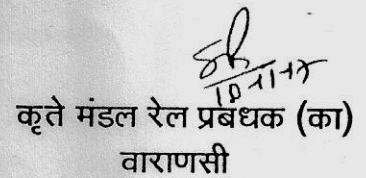 कृते मंडल रेल प्रबंधक (का)
वाराणसी